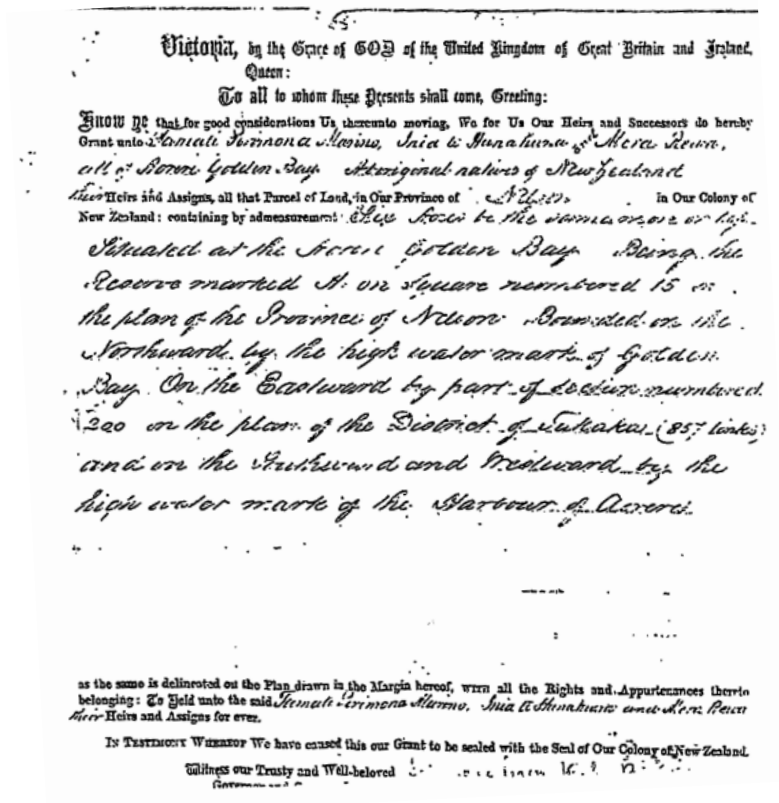 Victoria, by the Grace of GOD of the United Kingdom of Great Britain and Ireland,
Queen:
To all to whom these Presents shall come, Greeting:
Know ye that for good considerations Us thereunto moving, We for Us Our Heirs and Successors do hereby
Grant unto Tamati Pirimona Marino, Inia te Hunahuna and Mera Rewa,
all of Golden Bay Aboriginal natives of New Zealand
their Heirs and Assigns, all that Parcel of Land, in Our Province of Nelson in Our Colony of
New Zealand: containing by admeasurement be the same more or less
Situated at the Golden Bay Being the
Reserve marked A. on Square numbered 15 on
the plan of the Province of Nelson Bounded on the
Northward by the high water mark of Golden
Bay On the Eastward by part of Section numbered
on the plan of the District of Takaka (857 links)
and on the Southward and Westward by the
high water mark of the Harbour of
as the same is delineated on the Plan drawn in the Margin hereof, with all the Rights and Appurtenances thereto
belonging: To Hold unto the said Tamati Pirimona Marino, Inia te Hunahuna and Mera Rewa
their Heirs and Assigns for ever.
IN TESTIMONY WHEREOF We have caused this our Grant to be sealed with the Seal of Our Colony of New Zealand.
Witness our Trusty and Well-beloved